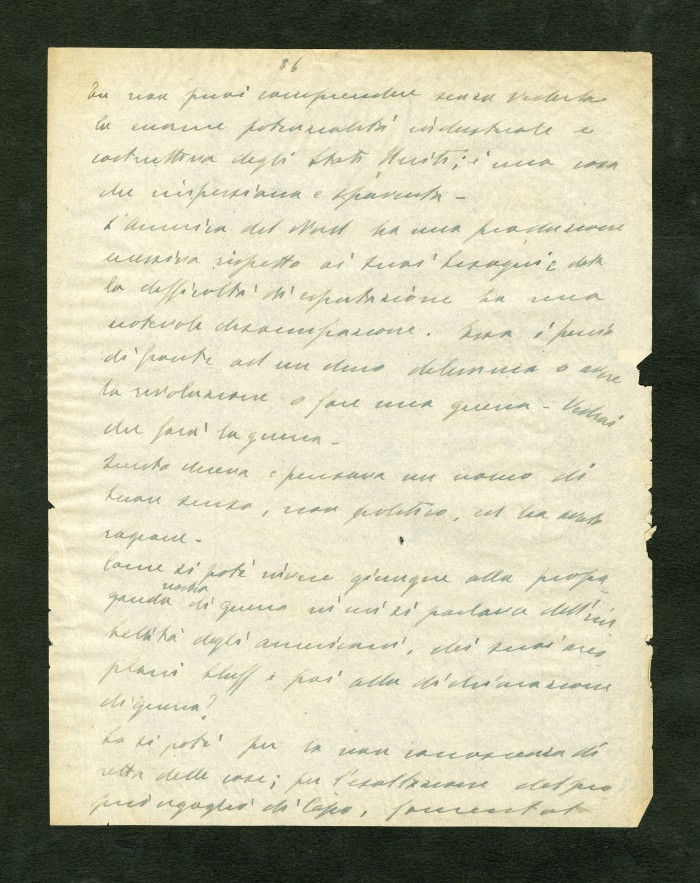 86
Tu non puoi comprendere senza vederla
la enorme potenzialità industriale e
costruttiva degli Stati Uniti; è una cosa
che impressiona e spaventa -
L'America del Nord ha una produzione
rispetto ai suoi bisogni e data
la difficoltà di esportazione ha una
notevole disoccupazione. Essa è perciò
di fronte ad un duro dilemma o avere
la rivoluzione o fare una guerra - Vedrai
che farà la guerra -
Questo diceva e pensava un uomo di
buon senso, non politico, ed ha avuto
ragione -
Come si poté giungere alla propa
ganda nostra di guerra in cui si parlava dell'im
belità degli americani, dei suoi areo
plani bluff e poi alla dichiarazione
di guerra?
Lo si poté per la non conoscenza di
retta delle cose; per l'esaltazione del pro
prio orgoglio di Capo,